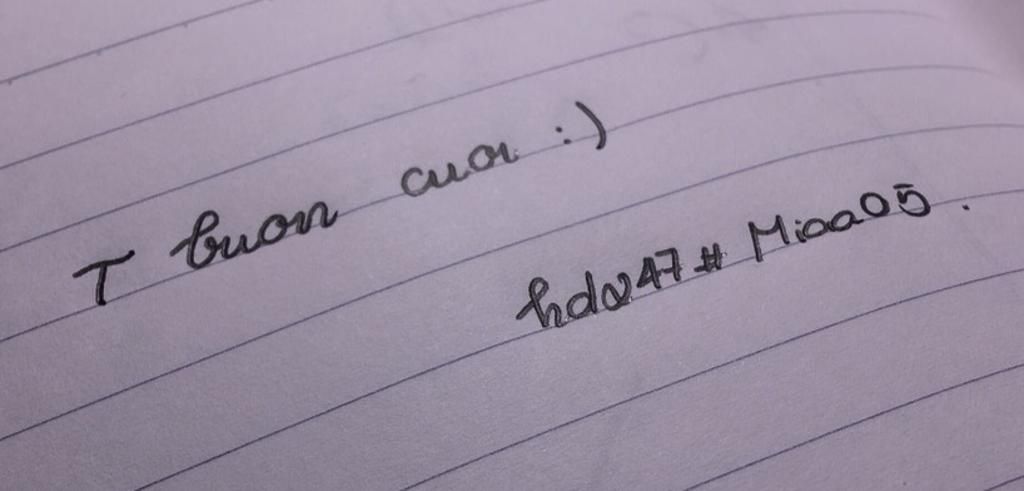 T buon cuoi :)
hdv247# Miaa05.